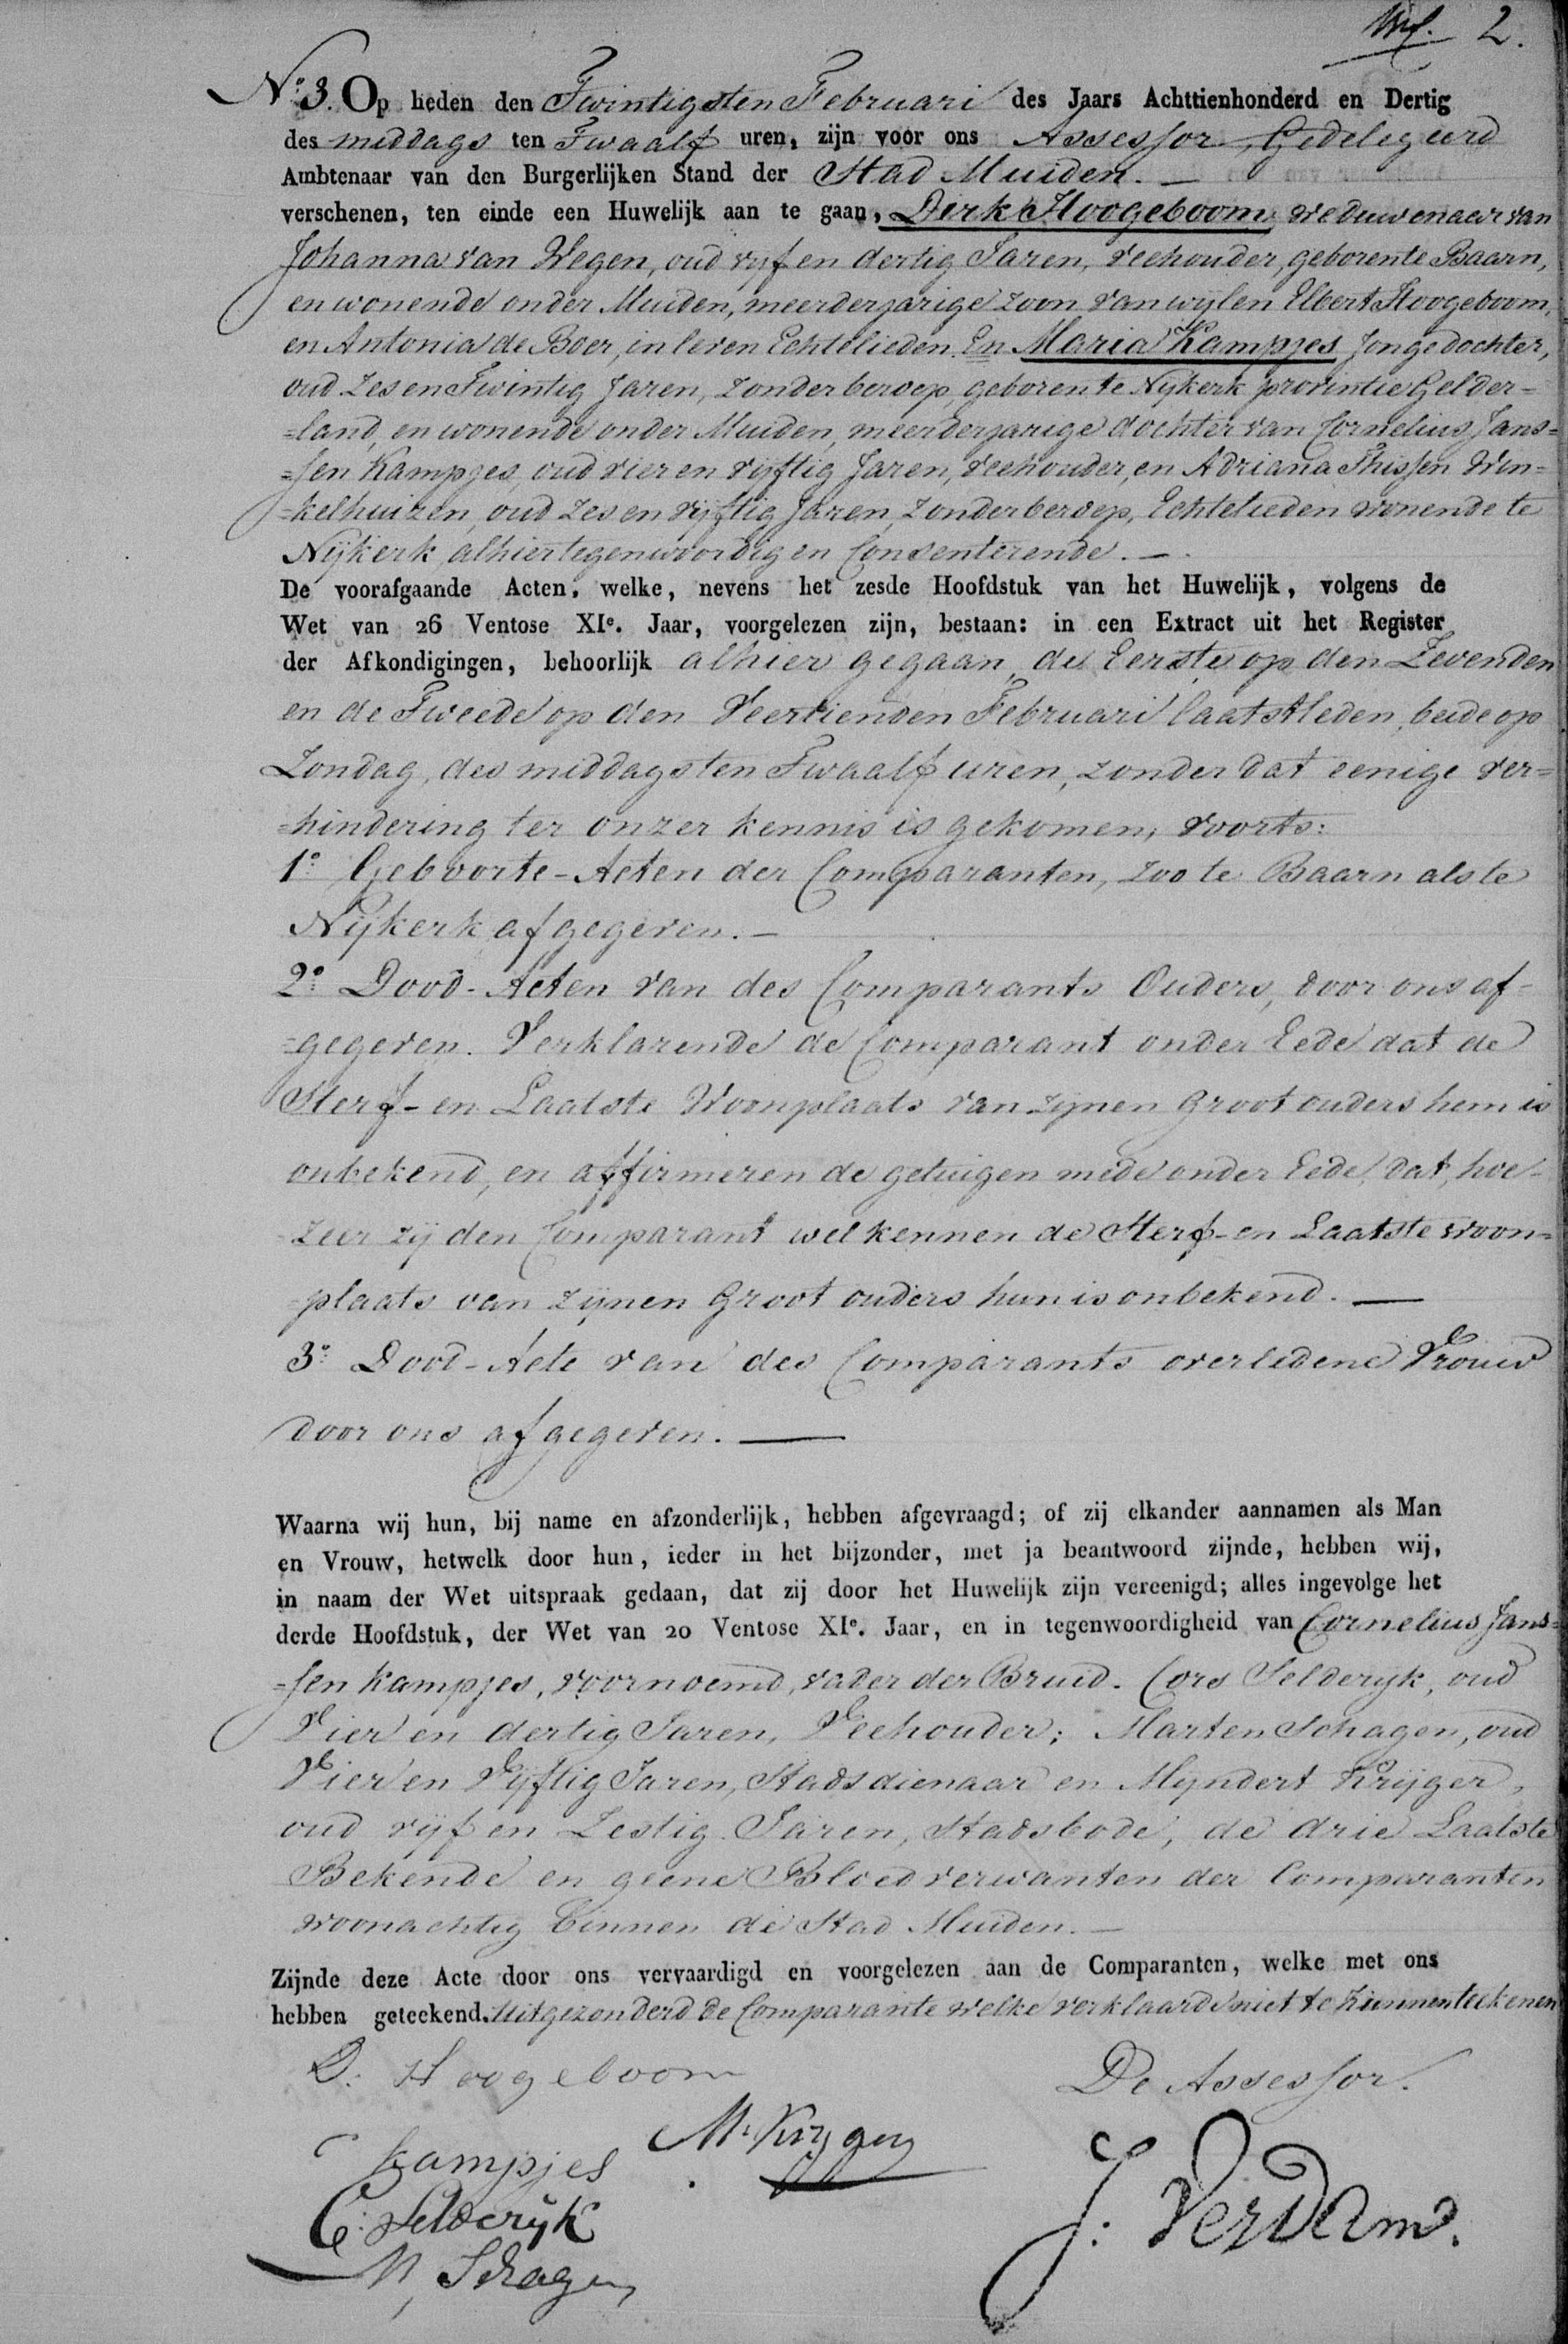 2.
No. 3. Op heden den Twintigsten Februari des Jaars Achttienhonderd en Dertig
des middags ten Twaalf uren, zijn voor ons Assessor, Gedelegeerd
Ambtenaar van den Burgerlijken Stand der Stad Muiden. —
verschenen, ten einde een Huwelijk aan te gaan, Derk Hoogeboom, weduwenaar van
Johanna van Wegen, oud vyf en dertig Jaren, veehouder, geboren te Baarn,
en wonende onder Muiden, meerderjarige zoon van wylen Elbert Hoogeboom,
en Antonia de Boer, in leven Echtelieden. En Maria Kampjes Jonge dochter,
oud Zes en Twintig Jaren, zonder beroep, geboren te Nijkerk provintie Gelder=
=land, en wonende onder Muiden, meerderjarige dochter van Cornelius Jans=
=sen Kampjes, oud vier en vijftig Jaren, veehouder, en Adriana Thissen Win=
=kelhuizen, oud Zes en vijftig Jaren, zonder beroep, Echtelieden wonende te
Nijkerk, alhier tegenwoordig en Consenterende. —
De voorafgaande Acten, welke, nevens het zesde Hoofdstuk van het Huwelijk, volgens de
Wet van 26 Ventose XIe. Jaar, voorgelezen zijn, bestaan: in een Extract uit het Register
der Afkondigingen, behoorlijk alhier gegaan, de Eerste op den Zevenden
en de Tweede op den Veertienden Februari laatstleden, beide op
Zondag, des middags ten Twaalf uren, zonder dat eenige ver=
=hindering ter onzer kennis is gekomen, voorts:
1o. Geboorte-Acten der Comparanten, zoo te Baarn als te
Nijkerk afgegeven. —
2o. Dood-Acten van des Comparants Ouders, door ons af=
=gegeven. Verklarende de Comparant onder Eede dat de
Sterf- en Laatste Woonplaats van zynen Groot ouders hem is
onbekend, en affirmeren de getuigen mede onder Eede, dat, hoe=
zeer zij den Comparant wel kennen de Sterf- en Laatste woon=
=plaats van zijnen Groot ouders hun is onbekend. —
3o. Dood-Acte van des Comparants overledene Vrouw
door ons afgegeven. —
Waarna wij hun, bij name en afzonderlijk, hebben afgevraagd; of zij elkander aannamen als Man
en Vrouw, hetwelk door hun, ieder in het bijzonder, met ja beantwoord zijnde, hebben wij,
in naam der Wet uitspraak gedaan, dat zij door het Huwelijk zijn vereenigd; alles ingevolge het
derde Hoofdstuk, der Wet van 20 Ventose XIe. Jaar, en in tegenwoordigheid van Cornelius Jans=
=sen Kampjes, voornoemd, vader der Bruid. Cors Selderyk, oud
Vier en dertig Jaren, Veehouder; Marten Schagen, oud
Vier en Vyftig Jaren, Stadsdienaar en Myndert Krijger,
oud vijf en Zestig Jaren, Stadsbode, de drie Laatste
Bekende en geene Bloedverwanten der Comparanten
woonachtig binnen de Stad Muiden. —
Zijnde deze Acte door ons vervaardigd en voorgelezen aan de Comparanten, welke met ons
hebben geteekend. Uitgezonderd de Comparante welke verklaarde niet te kunnen teekenen
D: Hoogeboom
De Assessor.
C Kampjes
M: Kryger
C: Selderyk
J. Verdam.
M, Schagen